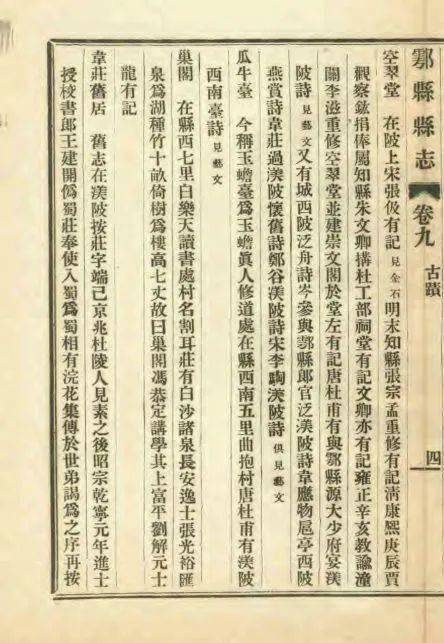 鄠縣縣志 卷九 古蹟 四
空翠堂 在陂上宋張伋有記 見金石 明末知縣張宗孟重修有記淸康熙庚辰賈
觀察鉉捐俸屬知縣朱文卿搆杜工部祠堂有記文卿亦有記雍正辛亥敎諭潼
關李滋重修空翠堂並建崇文閣於堂左有記唐杜甫有與鄠縣源大少府宴渼
陂詩 見藝文 又有城西陂泛舟詩岑參與鄠縣郎官泛渼陂詩韋應物扈亭西陂
燕賞詩韋莊過渼陂懷舊詩鄭谷渼陂詩宋李騊渼陂詩 俱見藝文
瓜牛臺 今稱玉蟾臺爲玉蟾眞人修道處在縣西南五里曲抱村唐杜甫有渼陂
西南臺詩 見藝文
巢閣 在縣西七里白樂天讀書處村名割耳莊有白沙諸泉長安逸士張光裕匯
泉爲湖種竹十畝倚樹爲樓高七丈故曰巢閣馮恭定講學其上富平劉解元士
龍有記
韋莊舊居 舊志在渼陂按莊字端己京兆杜陵人見素之後昭宗乾寧元年進士
授校書郎王建開僞蜀莊奉使入蜀爲蜀相有浣花集傳於世弟藹爲之序再按